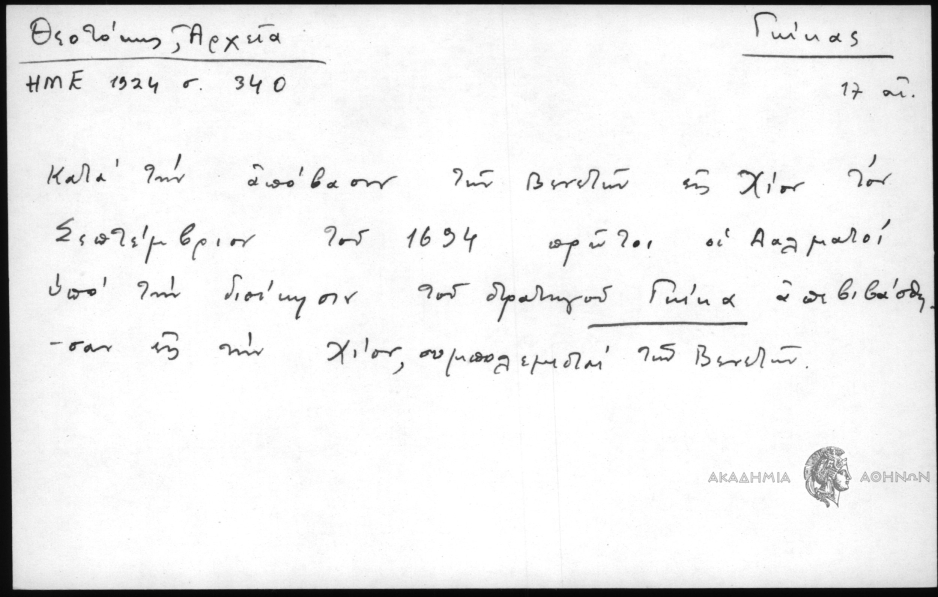 Θεοτόκης, Ἀρχεῖα
Γκίκας
ΗΜΕ 1924 σ. 340
17 αἰ.
Κατά τήν ἀπόβασιν τῶν Βενετῶν εἰς Χίον τόν
Σεπτέμβριον τοῦ 1694 πρῶτοι οἱ Δαλματοί
ὑπό τήν διοίκησιν τοῦ στρατηγοῦ Γκίκα ἀπεβιβάσθη-
-σαν εἰς τήν Χίον, συμπολεμισταί τῶν Βενετῶν.
ΑΚΑΔΗΜΙΑ ΑΘΗΝΩΝ